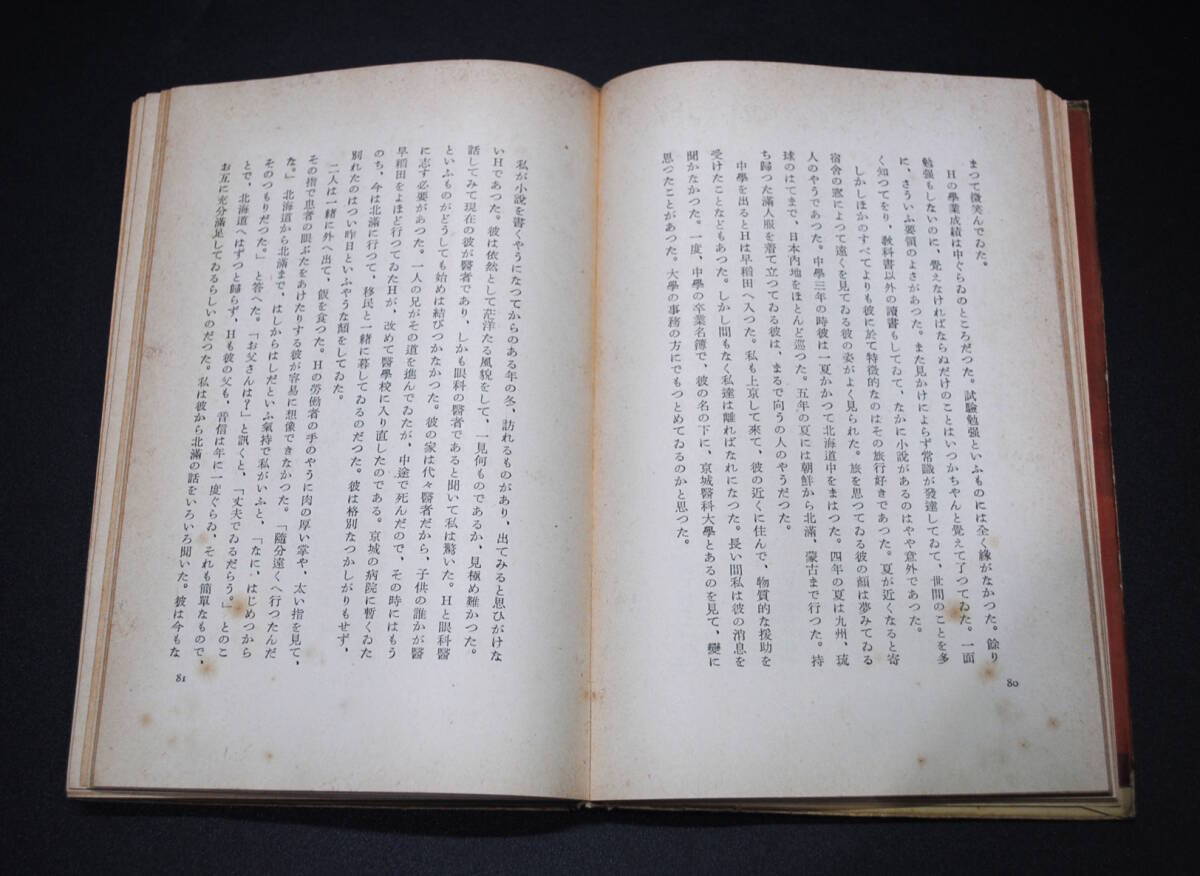 まつて微笑んでゐた。
Hの學業成績は中ぐらゐのところだつた。試驗勉強といふものには全く緣がなかつた。餘り
勉強もしないのに、覺えなければならぬだけのことはいつかちやんと覺えて了つてゐた。一面
に、さういふ要領のよさがあつた。また見かけによらず常識が發達してゐて、世間のことを多
く知つてをり、教科書以外の讀書もしてゐて、なかに小說があるのはやや意外であつた。
しかしほかのすべてよりも彼に於て特徵的なのはその旅行好きであつた。夏が近くなると寄
宿舍の窓によつて遠くを見てゐる彼の姿がよく見られた。旅を思つてゐる彼の顏は夢みてゐる
人のやうであつた。中學三年の時彼は一夏かかつて北海道中をまはつた。四年の夏は九州、琉
球のはてまで、日本內地をほとんど巡つた。五年の夏には朝鮮から北滿、蒙古まで行つた。持
ち歸つた滿人服を着て立つてゐる彼は、まるで向うの人のやうだつた。
中學を出るとHは早稻田へ入つた。私も上京して來て、彼の近くに住んで、物質的な援助を
受けたことなどもあつた。しかし間もなく私達は離ればなれになつた。長い間私は彼の消息を
聞かなかつた。一度、中學の卒業名簿で、彼の名の下に、京城醫科大學とあるのを見て、變に
思つたことがあつた。大學の事務の方にでもつとめてゐるのかと思つた。
80
私が小說を書くやうになつてからのある年の冬、訪れるものがあり、出てみると思ひがけな
いHであつた。彼は依然として茫洋たる風貌をして、一見何ものであるか、見極め難かつた。
話してみて現在の彼が醫者であり、しかも眼科の醫者であると聞いて私は驚いた。Hと眼科醫
といふものがどうしても始めは結びつかなかつた。彼の家は代々醫者だから、子供の誰かが醫
に志す必要があつた。一人の兄がその道を進んでゐたが、中途で死んだので、その時にはもう
早稻田をよほど行つてゐたHが、改めて醫學校に入り直したのである。京城の病院に暫くゐた
のち、今は北滿に行つて、移民と一緖に暮してゐるのだつた。彼は格別なつかしがりもせず、
別れたのはつい昨日といふやうな顏をしてゐた。
二人は一緖に外へ出て、飯を食つた。Hの勞働者の手のやうに肉の厚い掌や、太い指を見て、
その指で患者の眼ぶたをあけたりする彼が容易に想像できなかつた。「隨分遠くへ行つたんだ
な。」北海道から北滿まで、はしからはしだといふ氣持で私がいふと、「なに、はじめつから
そのつもりだつた。」と答へた。「お父さんは?」と訊くと、「丈夫でゐるだらう。」とのこ
とで、北海道へはずつと歸らず、Hも彼の父も、音信は年に一度ぐらゐ、それも簡單なもので、
お互に充分滿足してゐるらしいのだつた。私は彼から北滿の話をいろいろ聞いた。彼は今もな
81